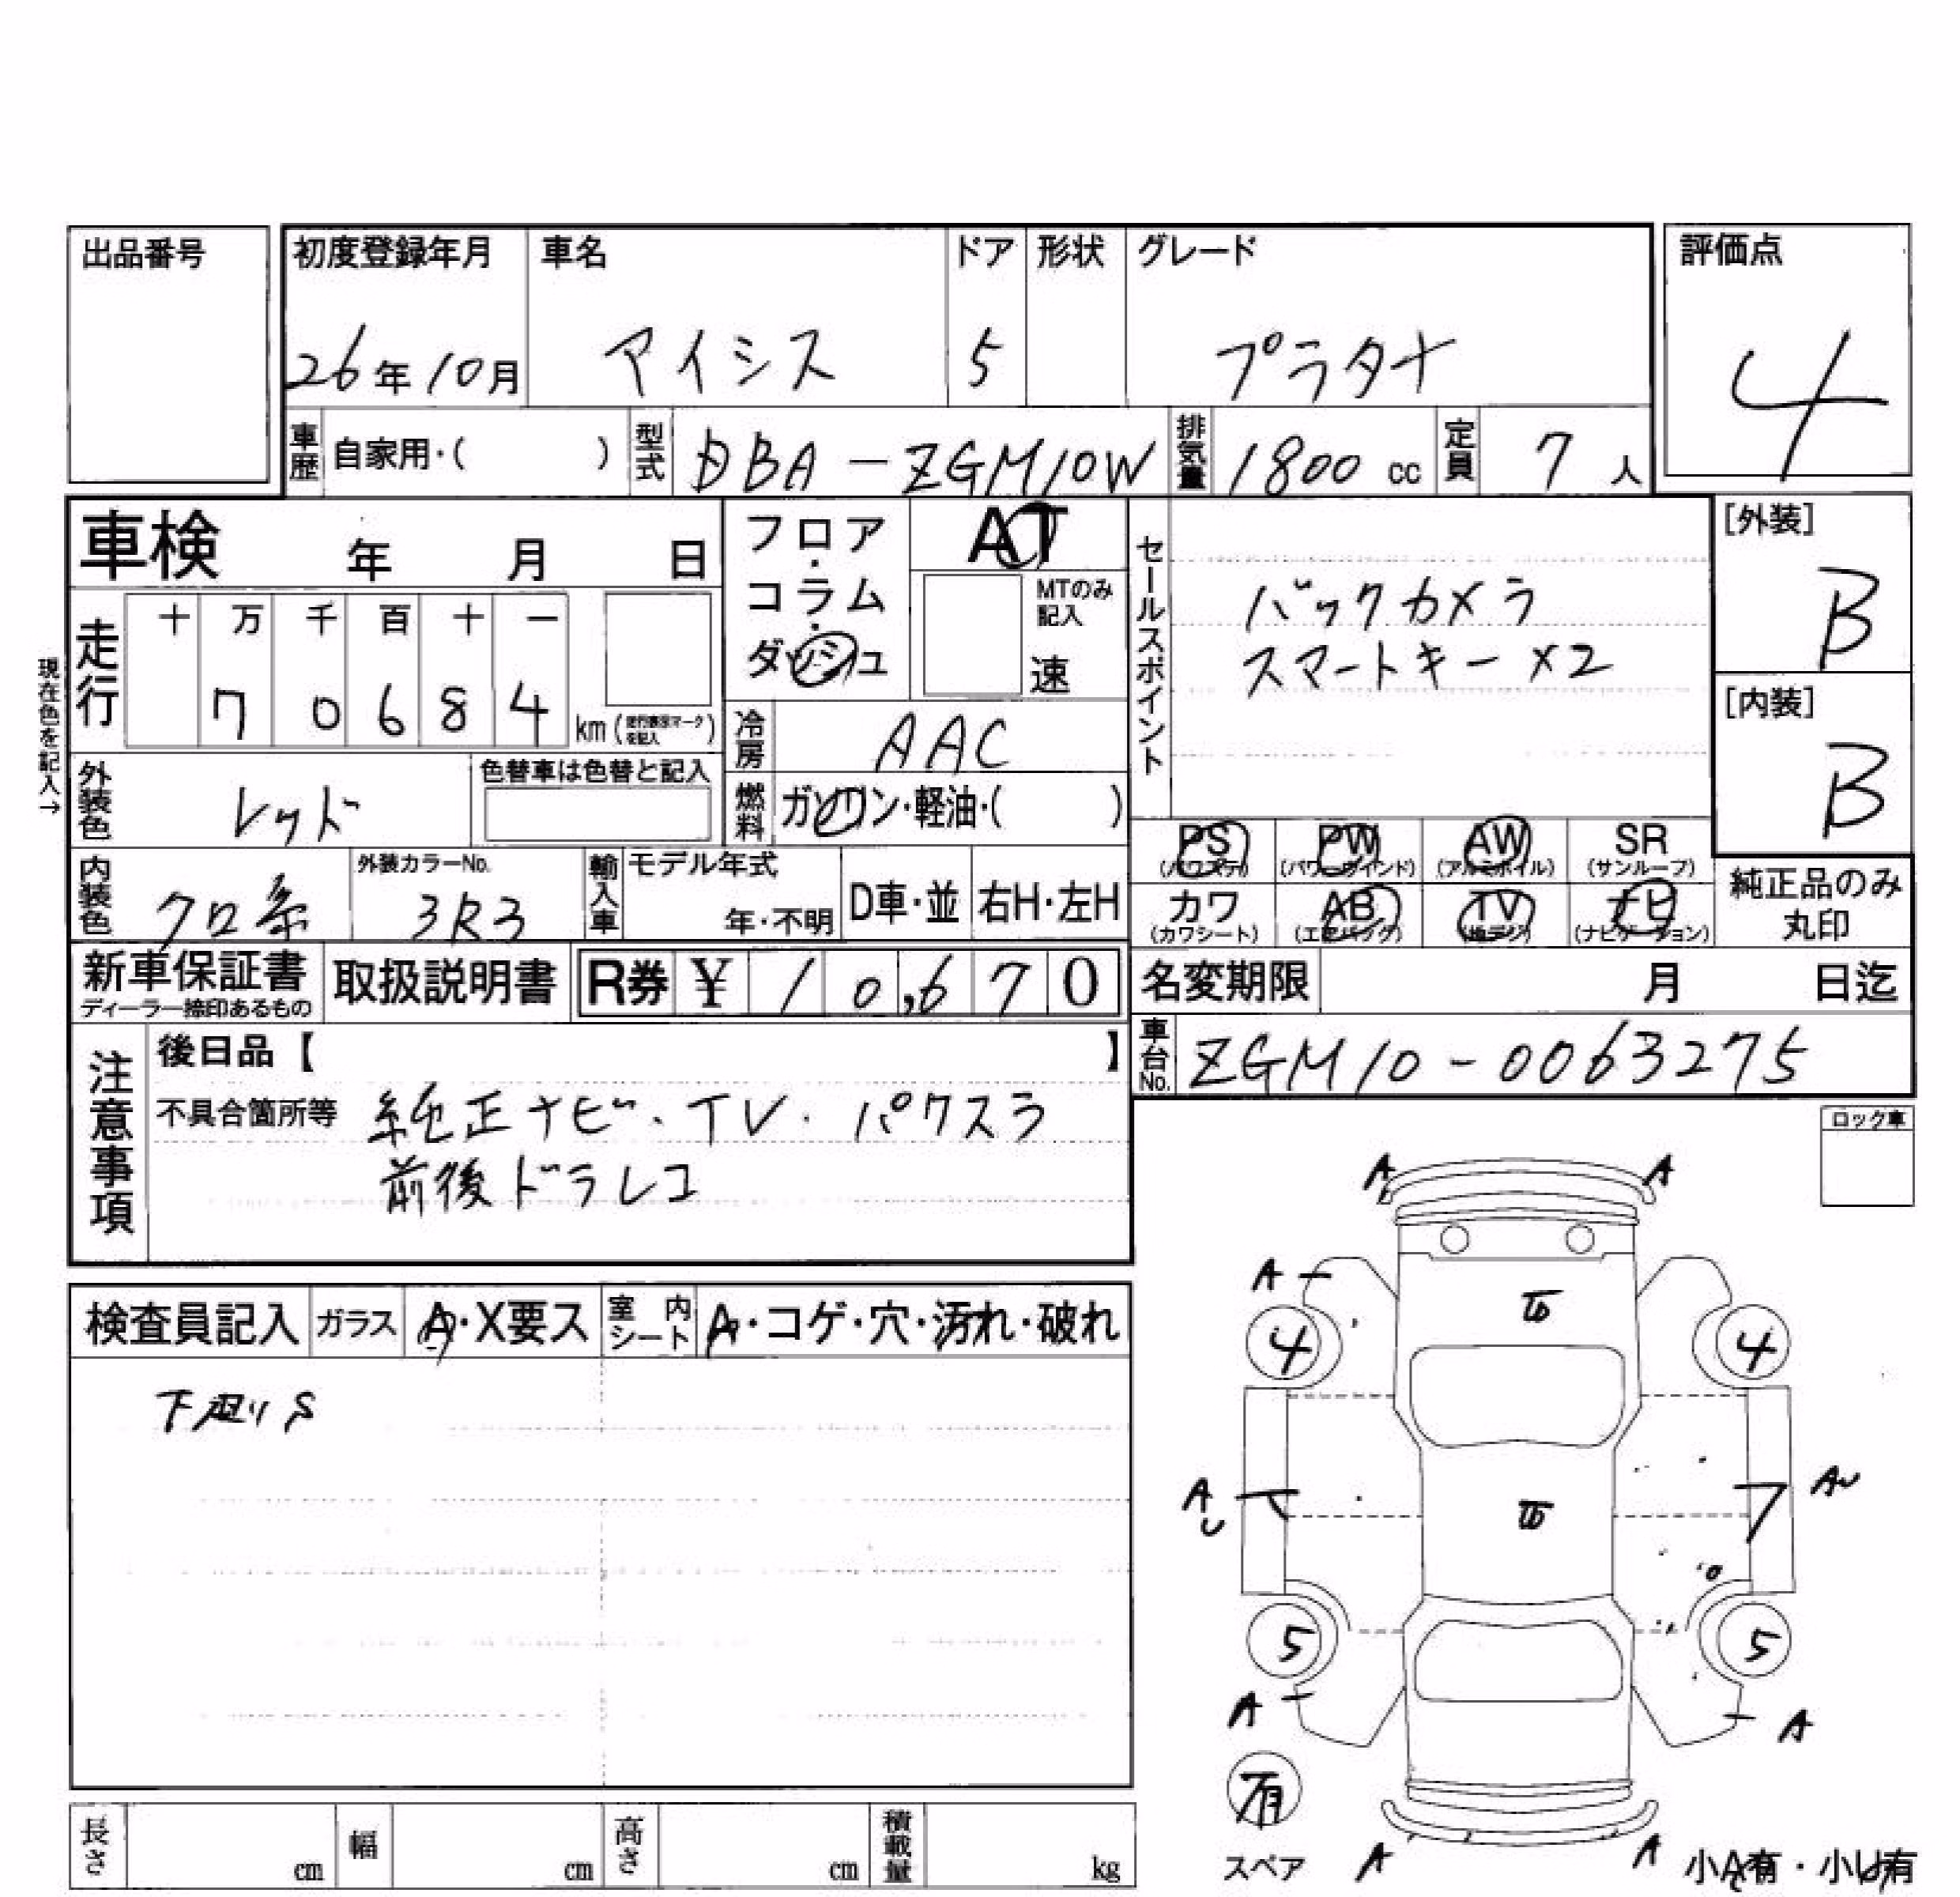 出品番号
初度登録年月 車名 ドア 形状 グレード
評価点
26年10月 アイシス 5 プラタナ
4
車歴 自家用・( ) 型式 DBA-ZGM10W 排気量 1800 cc 定員 7 人
車検 年 月 日
フロア・コラム・ダッシュ
AT
MTのみ記入
速
セールスポイント
バックカメラ
スマートキー×2
[外装]
B
[内装]
B
現在色を記入→
走行 十 万 千 百 十 一
7 0 6 8 4 km (走行表示マークを記入)
冷房 AAC
外装色 レッド 色替車は色替と記入
燃料 ガソリン・軽油・( )
PS (パワステ) PW (パワーウインド) AW (アルミホイル) SR (サンルーフ)
カワ (カワシート) AB (エアバッグ) TV (地デジ) ナビ (ナビゲーション)
純正品のみ丸印
内装色 クロ系 外装カラーNo. 3R3 輸入車 モデル年式 年・不明 D車・並 右H・左H
新車保証書 ディーラー捺印あるもの 取扱説明書 R券 ¥ 10,670
名変期限 月 日迄
車台No. ZGM10-0063275
注意事項
後日品【 】
不具合箇所等 純正ナビ・TV・パワスラ
前後ドラレコ
ロック車
検査員記入 ガラス A・X要ス 室内シート A・コゲ・穴・汚れ・破れ
下廻りS
A A
A
4 4
A AU
U
5 5
A A
有
スペア A A 小A有・小U有
長さ cm 幅 cm 高さ cm 積載量 kg